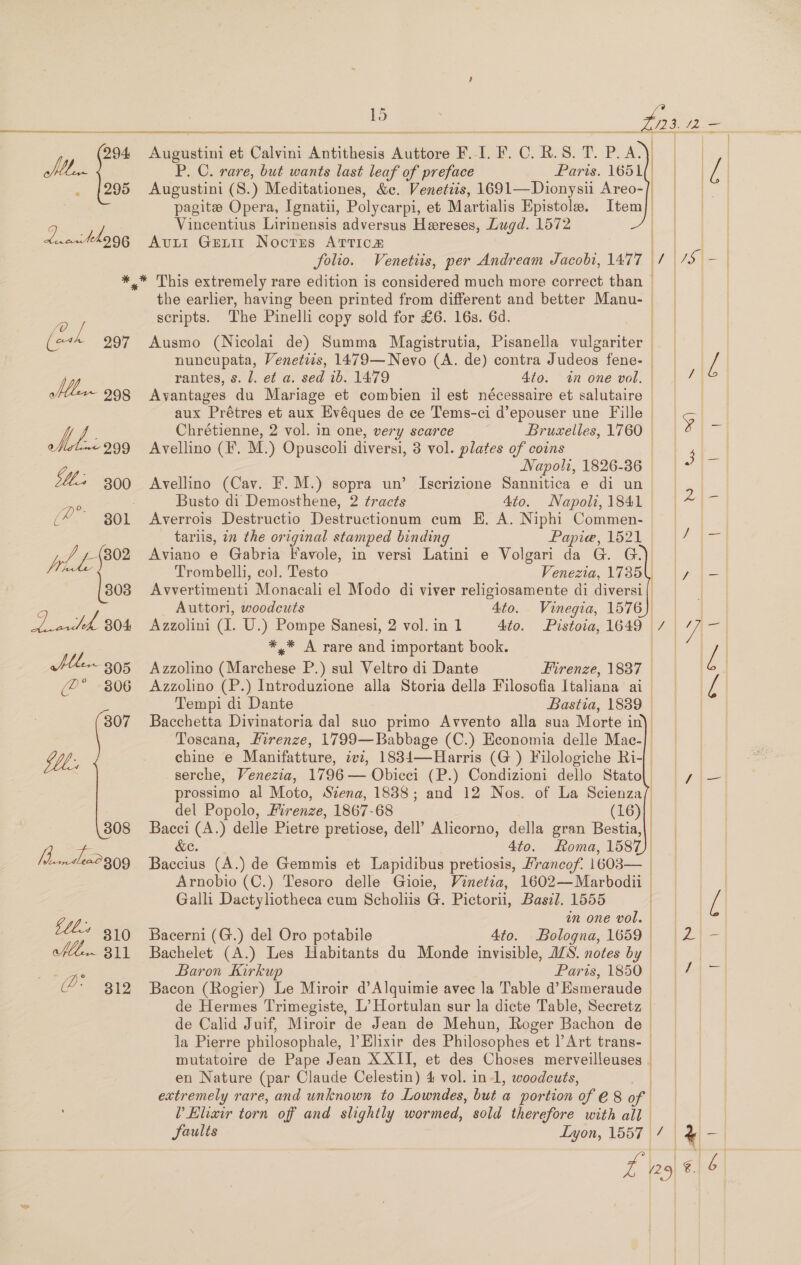 15
£123. 12 —
Allen 294 Augustini et Calvini Antithesis Auttore F. I. F. C. R. S. T. P. A.
P. C. rare, but wants last leaf of preface Paris. 1651
295 Augustini (S.) Meditationes, &c. Venetiis, 1691—Dionysii Areo-
pagitæ Opera, Ignatii, Polycarpi, et Martialis Epistolæ. Item
Vincentius Lirinensis adversus Hæreses, Lugd. 1572
296 AULI GELII NOCTES ATTICÆ
folio. Venetiis, per Andream Jacobi, 1477 1 15 -
*** This extremely rare edition is considered much more correct than
the earlier, having been printed from different and better Manu-
scripts. The Pinelli copy sold for £6. 16s. 6d.
Cash 297 Ausmo (Nicolai de) Summa Magistrutia, Pisanella vulgariter
nuncupata, Venetiis, 1479—Nevo (A. de) contra Judeos fene-
rantes, s. l. et a. sed ib. 1479 4to. in one vol. 1 6
Allen 298 Avantages du Mariage et combien il est nécessaire et salutaire
aux Prêtres et aux Evéques de ce Tems-ci d'epouser une Fille
Chrétienne, 2 vol. in one, very scarce Bruxelles, 1760 8 -
299 Avellino (F. M.) Opuscoli diversi, 3 vol. plates of coins
Napoli, 1826-36 3 -
Ell: 300 Avellino (Cav. F. M.) sopra un' Iscrizione Sannitica e di un
Busto di Demosthene, 2 tracts 4to. Napoli, 1841 2 -
Do. 301 Averrois Destructio Destructionum cum E. A. Niphi Commen-
tariis, in the original stamped binding Papiæ, 1521 1 -
302 Aviano e Gabria Favole, in versi Latini e Volgari da G. G.
Trombelli, col. Testo Venezia, 1735 1 -
303 Avvertimenti Monacali el Modo di viver religiosamente di diversi
Auttori, woodcuts 4to. Vinegia, 1576
304 Azzolini (I. U.) Pompe Sanesi, 2 vol. in 1 4to. Pistoia, 1649 1 17 -
*** A rare and important book.
Allen 305 Azzolino (Marchese P.) sul Veltro di Dante Firenze, 1837 6
Do 306 Azzolino (P.) Introduzione alla Storia della Filosofia Italiana ai
Tempi di Dante Bastia, 1839 6
307 Bacchetta Divinatoria dal suo primo Avvento alla sua Morte in
Toscana, Firenze, 1799—Babbage (C.) Economia delle Mac-
chine e Manifatture, ivi, 1834—Harris (G ) Filologiche Ri-
Ell: serche, Venezia, 1796 — Obicci (P.) Condizioni dello Stato 1 —
prossimo al Moto, Siena, 1838; and 12 Nos. of La Scienza
del Popolo, Firenze, 1867-68 (16)
308 Bacci (A.) delle Pietre pretiose, dell' Alicorno, della gran Bestia,
&c. 4to. Roma, 1587
309 Baccius (A.) de Gemmis et Lapidibus pretiosis, Francof. 1603—
Arnobio (C.) Tesoro delle Gioie, Vinetia, 1602—Marbodii
Galli Dactyliotheca cum Scholiis G. Pictorii, Basil. 1555
in one vol. 6
Ell: 310 Bacerni (G.) del Oro potabile 4to. Bologna, 1659 2 -
Allen 311 Bachelet (A.) Les Habitants du Monde invisible, MS. notes by
Baron Kirkup Paris, 1850 1 -
Do. 312 Bacon (Rogier) Le Miroir d'Alquimie avec la Table d'Esmeraude
de Hermes Trimegiste, L'Hortulan sur la dicte Table, Secretz
de Calid Juif, Miroir de Jean de Mehun, Roger Bachon de
la Pierre philosophale, l'Elixir des Philosophes et l'Art trans-
mutatoire de Pape Jean XXII, et des Choses merveilleuses
en Nature (par Claude Celestin) 4 vol. in 1, woodcuts,
extremely rare, and unknown to Lowndes, but a portion of e 8 of
l'Elixir torn off and slightly wormed, sold therefore with all
faults Lyon, 1557 1 2 -
£ 129 8. 6